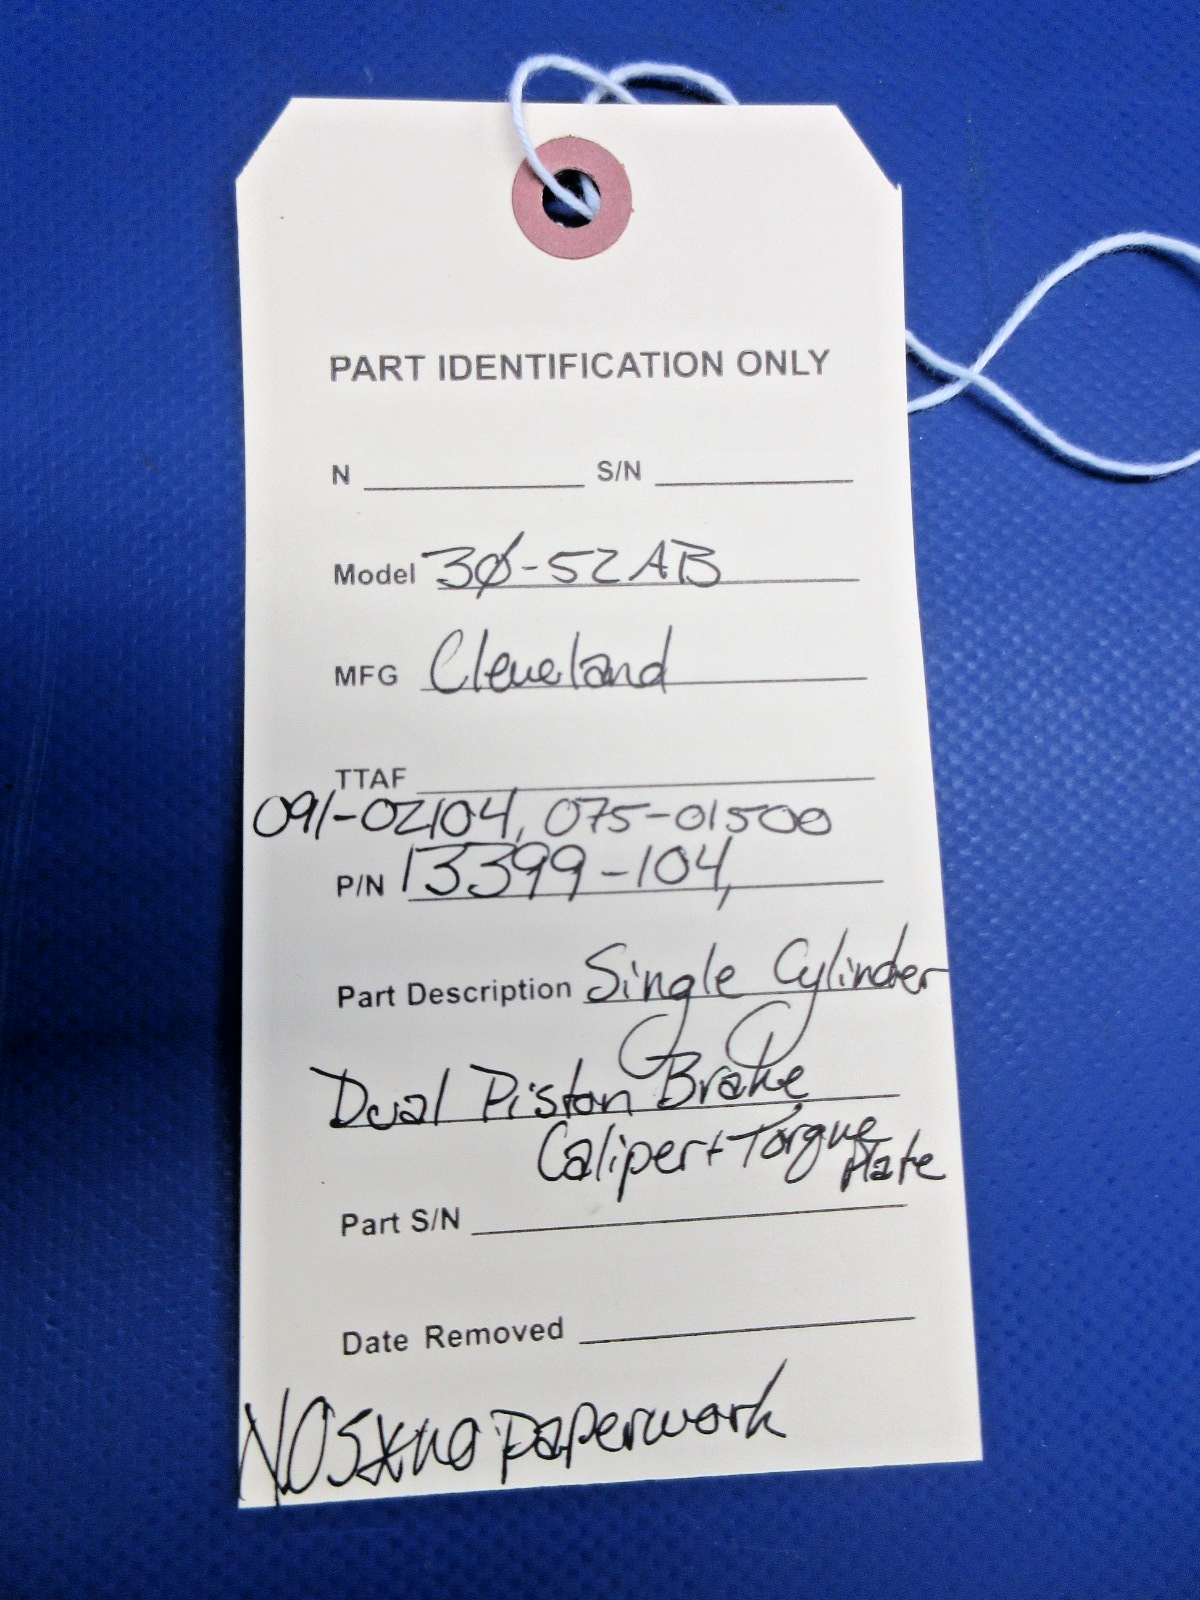 PART IDENTIFICATION ONLY
N S/N
Model 3Ø-52AB
MFG Cleveland
TTAF
091-02104, 075-01500
P/N 13399-104,
Part Description Single Cylinder
Dual Piston Brake
Caliper + Torque
Plate
Part S/N
Date Removed
NOS*no paperwork